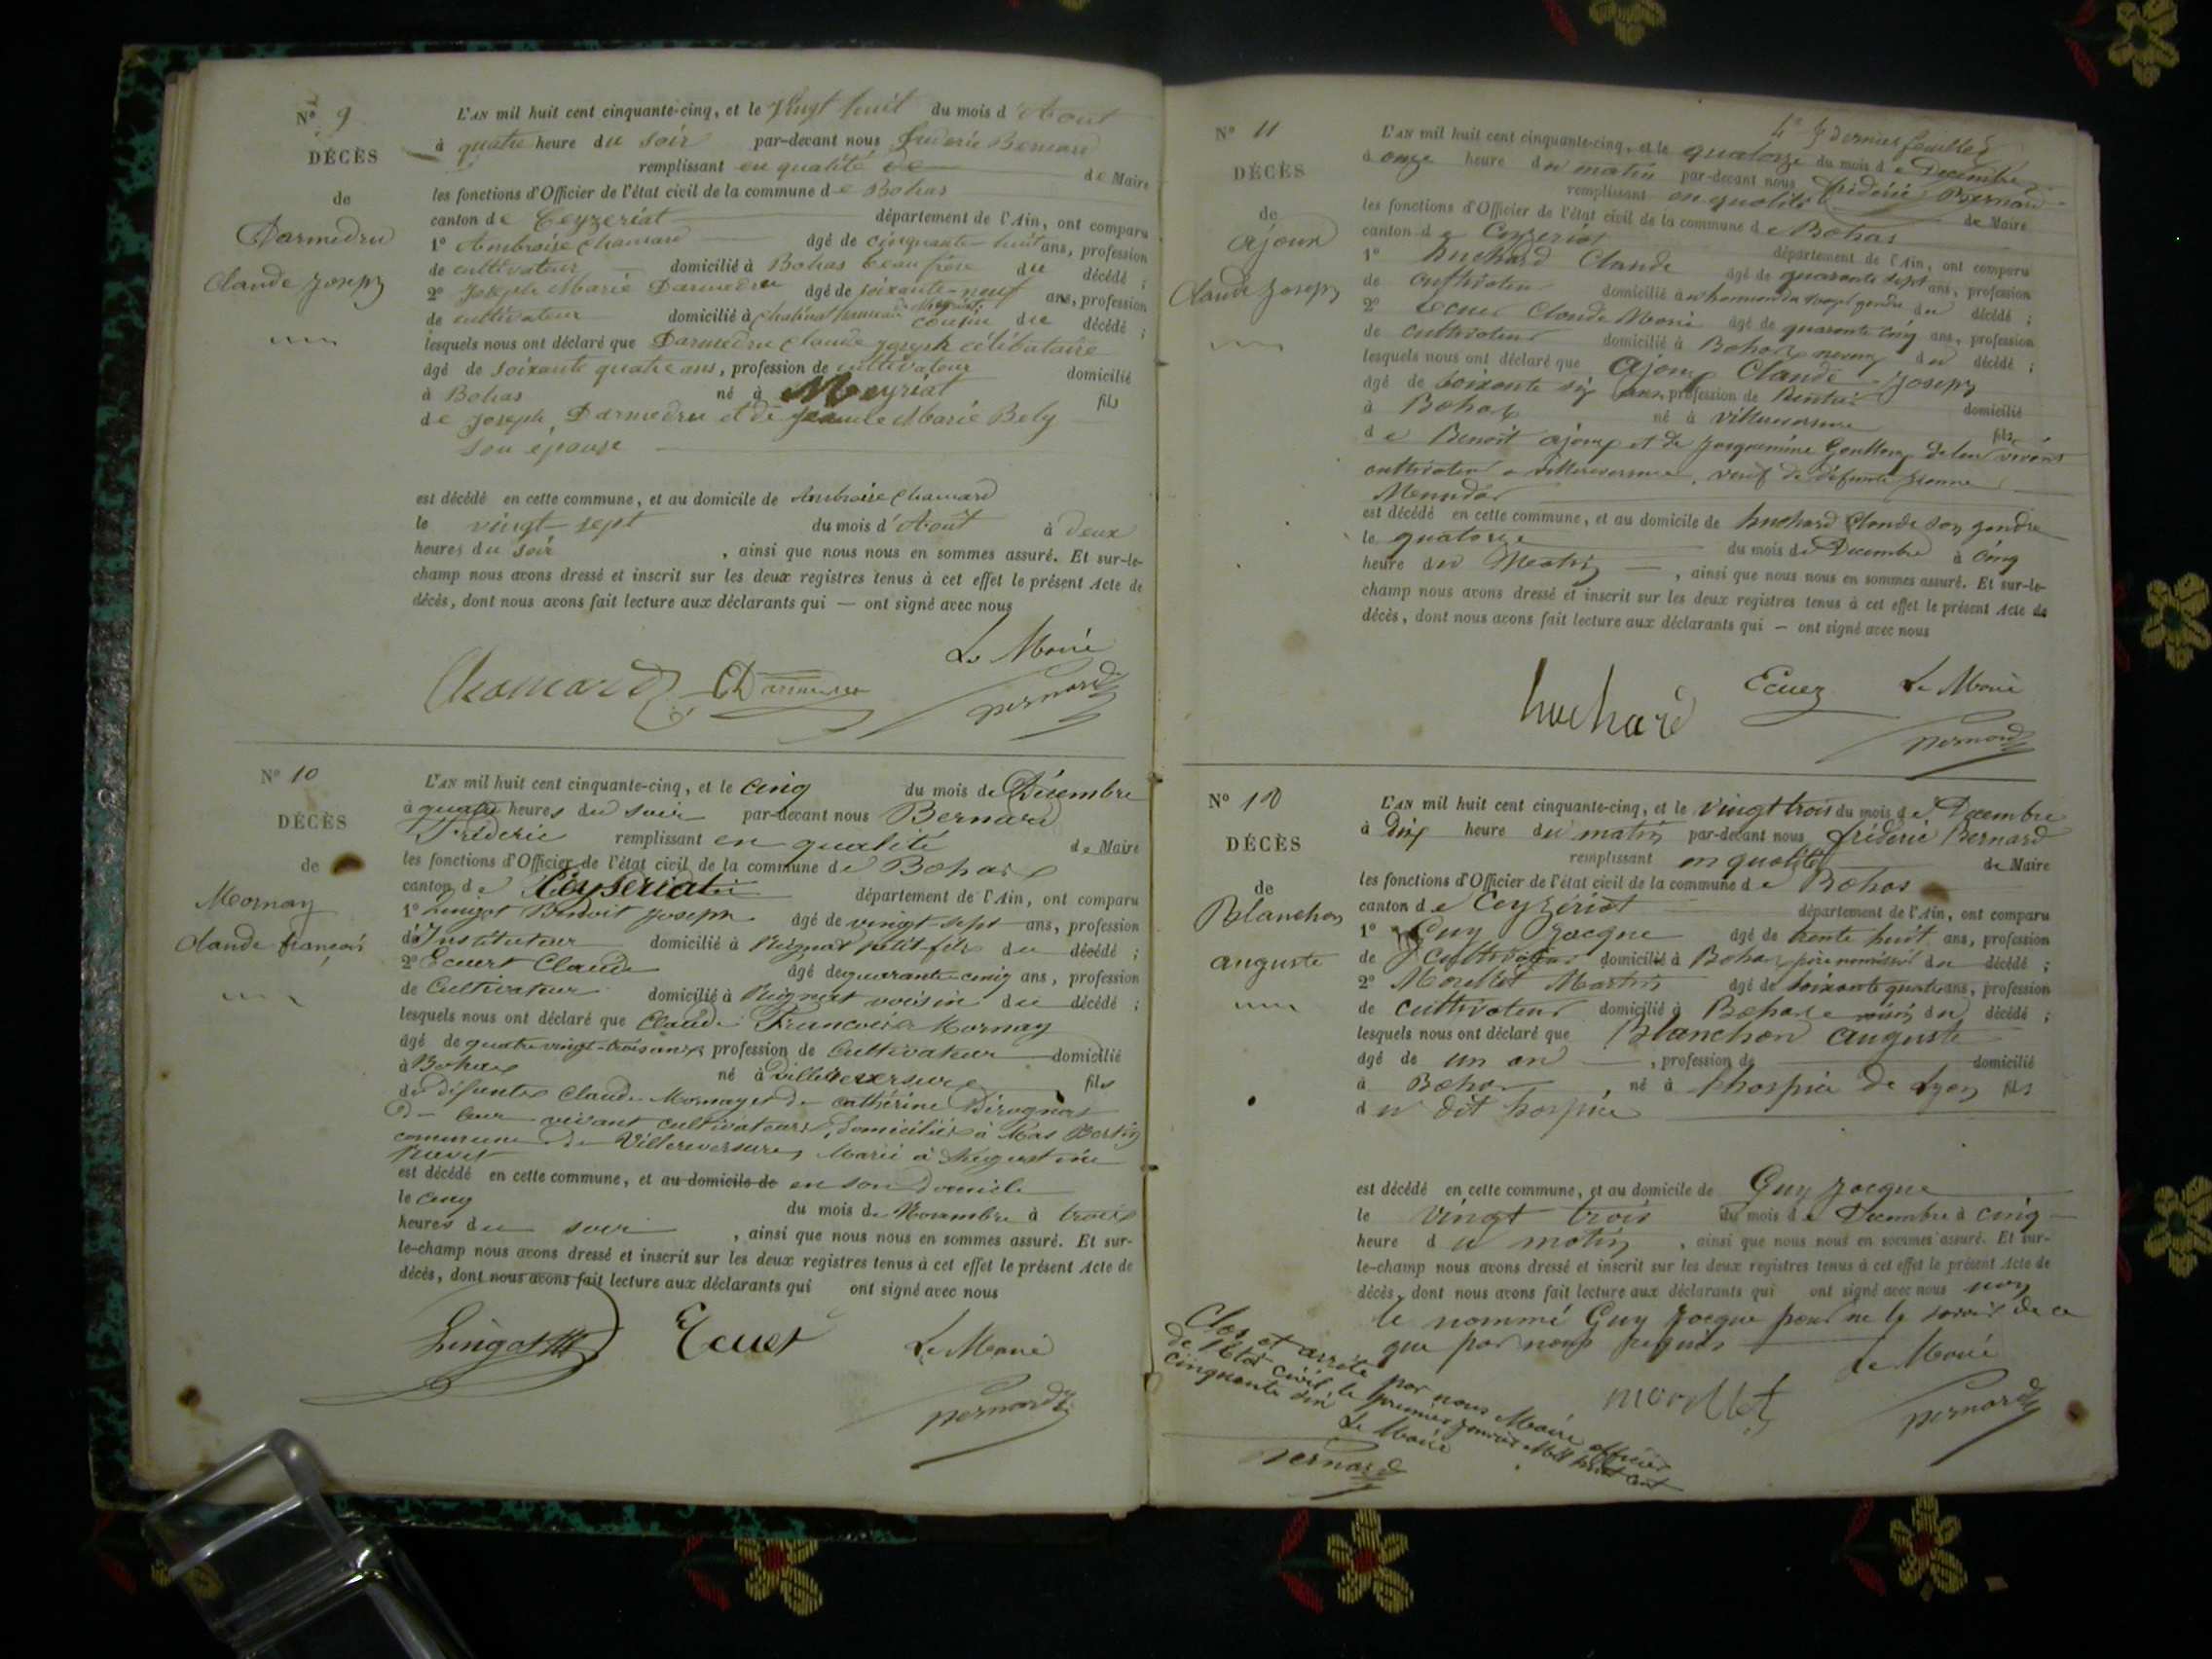 N° 9
DÉCÈS
de
Darmedru
Claude Joseph
L'AN mil huit cent cinquante-cinq, et le Vingt huit du mois d'Aout
à quatre heure du soir par-devant nous frederic Bernard
remplissant en qualité de de Maire
les fonctions d'Officier de l'état civil de la commune de Bohas
canton de Ceyzeriat département de l'Ain, ont comparu
1° Ambroise Chamard âgé de cinquante-huit ans, profession
de cultivateur domicilié à Bohas beau frère du décédé ;
2° Joseph Marie Darmedru âgé de soixante-neuf ans, profession
de cultivateur domicilié à hameau de cousin du décédé ;
lesquels nous ont déclaré que Darmedru Claude joseph célibataire
âgé de soixante quatre ans, profession de cultivateur domicilié
à Bohas né à Meyriat fils
de Joseph Darmedru et de Marie Bely
son epouse
est décédé en cette commune, et au domicile de Ambroise Chamard
le vingt-sept du mois d'Août à deux
heures du soir , ainsi que nous nous en sommes assuré. Et sur-le-
champ nous avons dressé et inscrit sur les deux registres tenus à cet effet le présent Acte de
décès, dont nous avons fait lecture aux déclarants qui — ont signé avec nous
Le Maire
Chamard Darmedru Bernard
N° 10
DÉCÈS
de
Mornay
Claude françois
L'AN mil huit cent cinquante-cinq, et le cinq du mois de Décembre
à quatre heures du soir par-devant nous Bernard
Fréderic remplissant en qualité de Maire
les fonctions d'Officier de l'état civil de la commune de Bohas
canton de Ceyseriat département de l'Ain, ont comparu
1° Lingot Benoit Joseph âgé de vingt-sept ans, profession
d'Instituteur domicilié à Rignat petit-fils du décédé ;
2° Ecuert Claude âgé de quarante-cinq ans, profession
de Cultivateur domicilié à Rignat voisin du décédé ;
lesquels nous ont déclaré que Claude François Mornay
âgé de quatre vingt-trois ans profession de Cultivateur domicilié
à Bohas né à Villereversure fils
de défunts Claude Mornay et de Cathérine
De leur vivant cultivateurs, domiciliés à Mas Bertin
commune de Villereversure, Marié à
est décédé en cette commune, et au domicile de en son domicile
le cinq du mois de Novembre à trois
heures du soir , ainsi que nous nous en sommes assuré. Et sur-
le-champ nous avons dressé et inscrit sur les deux registres tenus à cet effet le présent Acte de
décès, dont nous avons fait lecture aux déclarants qui ont signé avec nous
Lingot Ecuer Le Maire
Bernard
4e & dernier feuillet
N° 11
DÉCÈS
de
ajoux
Claude Joseph
L'AN mil huit cent cinquante-cinq, et le quatorze du mois de Decembre
à onze heure du matin par-devant nous frédéric Bernard
remplissant en qualité de Maire
les fonctions d'Officier de l'état civil de la commune de Bohas
canton de Ceyzeriat département de l'Ain, ont comparu
1° huchard Claude âgé de quarante sept ans, profession
de cultivateur domicilié à gendre du décédé ;
2° Ecuer Claude Marie âgé de quarante cinq ans, profession
de cultivateur domicilié à Bohas neveu du décédé ;
lesquels nous ont déclaré que ajoux Claude Joseph
âgé de soixante six ans, profession de Rentier domicilié
à Bohas né à fils
de Benoit ajoux et de Jacquemine de leur vivans
cultivateur a villereversure, veuf de défunte jeanne
est décédé en cette commune, et au domicile de huchard Claude son gendre
le quatorze du mois de Decembre à cinq
heure du Matin , ainsi que nous nous en sommes assuré. Et sur-le-
champ nous avons dressé et inscrit sur les deux registres tenus à cet effet le présent Acte de
décès, dont nous avons fait lecture aux déclarants qui — ont signé avec nous
huchard Ecuer Le Maire
Bernard
N° 12
DÉCÈS
de
Blanchon
auguste
L'AN mil huit cent cinquante-cinq, et le vingt trois du mois de Decembre
à dix heure du matin par-devant nous frédéric Bernard
remplissant en qualité de Maire
les fonctions d'Officier de l'état civil de la commune de Bohas
canton de Ceyzériat département de l'Ain, ont comparu
1° Guy Jacque âgé de trente huit ans, profession
de Cultivateur domicilié à Bohas père nourissié du décédé ;
2° Martin âgé de soixante quatre ans, profession
de cultivateur domicilié à Bohas voisin du décédé ;
lesquels nous ont déclaré que Blanchon auguste
âgé de un an , profession de domicilié
à Bohas , né à l'hospice de Lyon fils
du dit hospice
est décédé en cette commune, et au domicile de Guy Jacque
le vingt trois du mois de Decembre à cinq
heure du matin , ainsi que nous nous en sommes assuré. Et sur-
le-champ nous avons dressé et inscrit sur les deux registres tenus à cet effet le présent Acte de
décès, dont nous avons fait lecture aux déclarants qui ont signé avec nous non
le nommé Guy Jacque pour ne le savoir de ce
que par nous requis
le Maire
Bernard
Clos et arrêté par nous Maire officier
de l'Etat civil le premier janvier Mil huit cent
cinquante six
Le Maire
Bernard